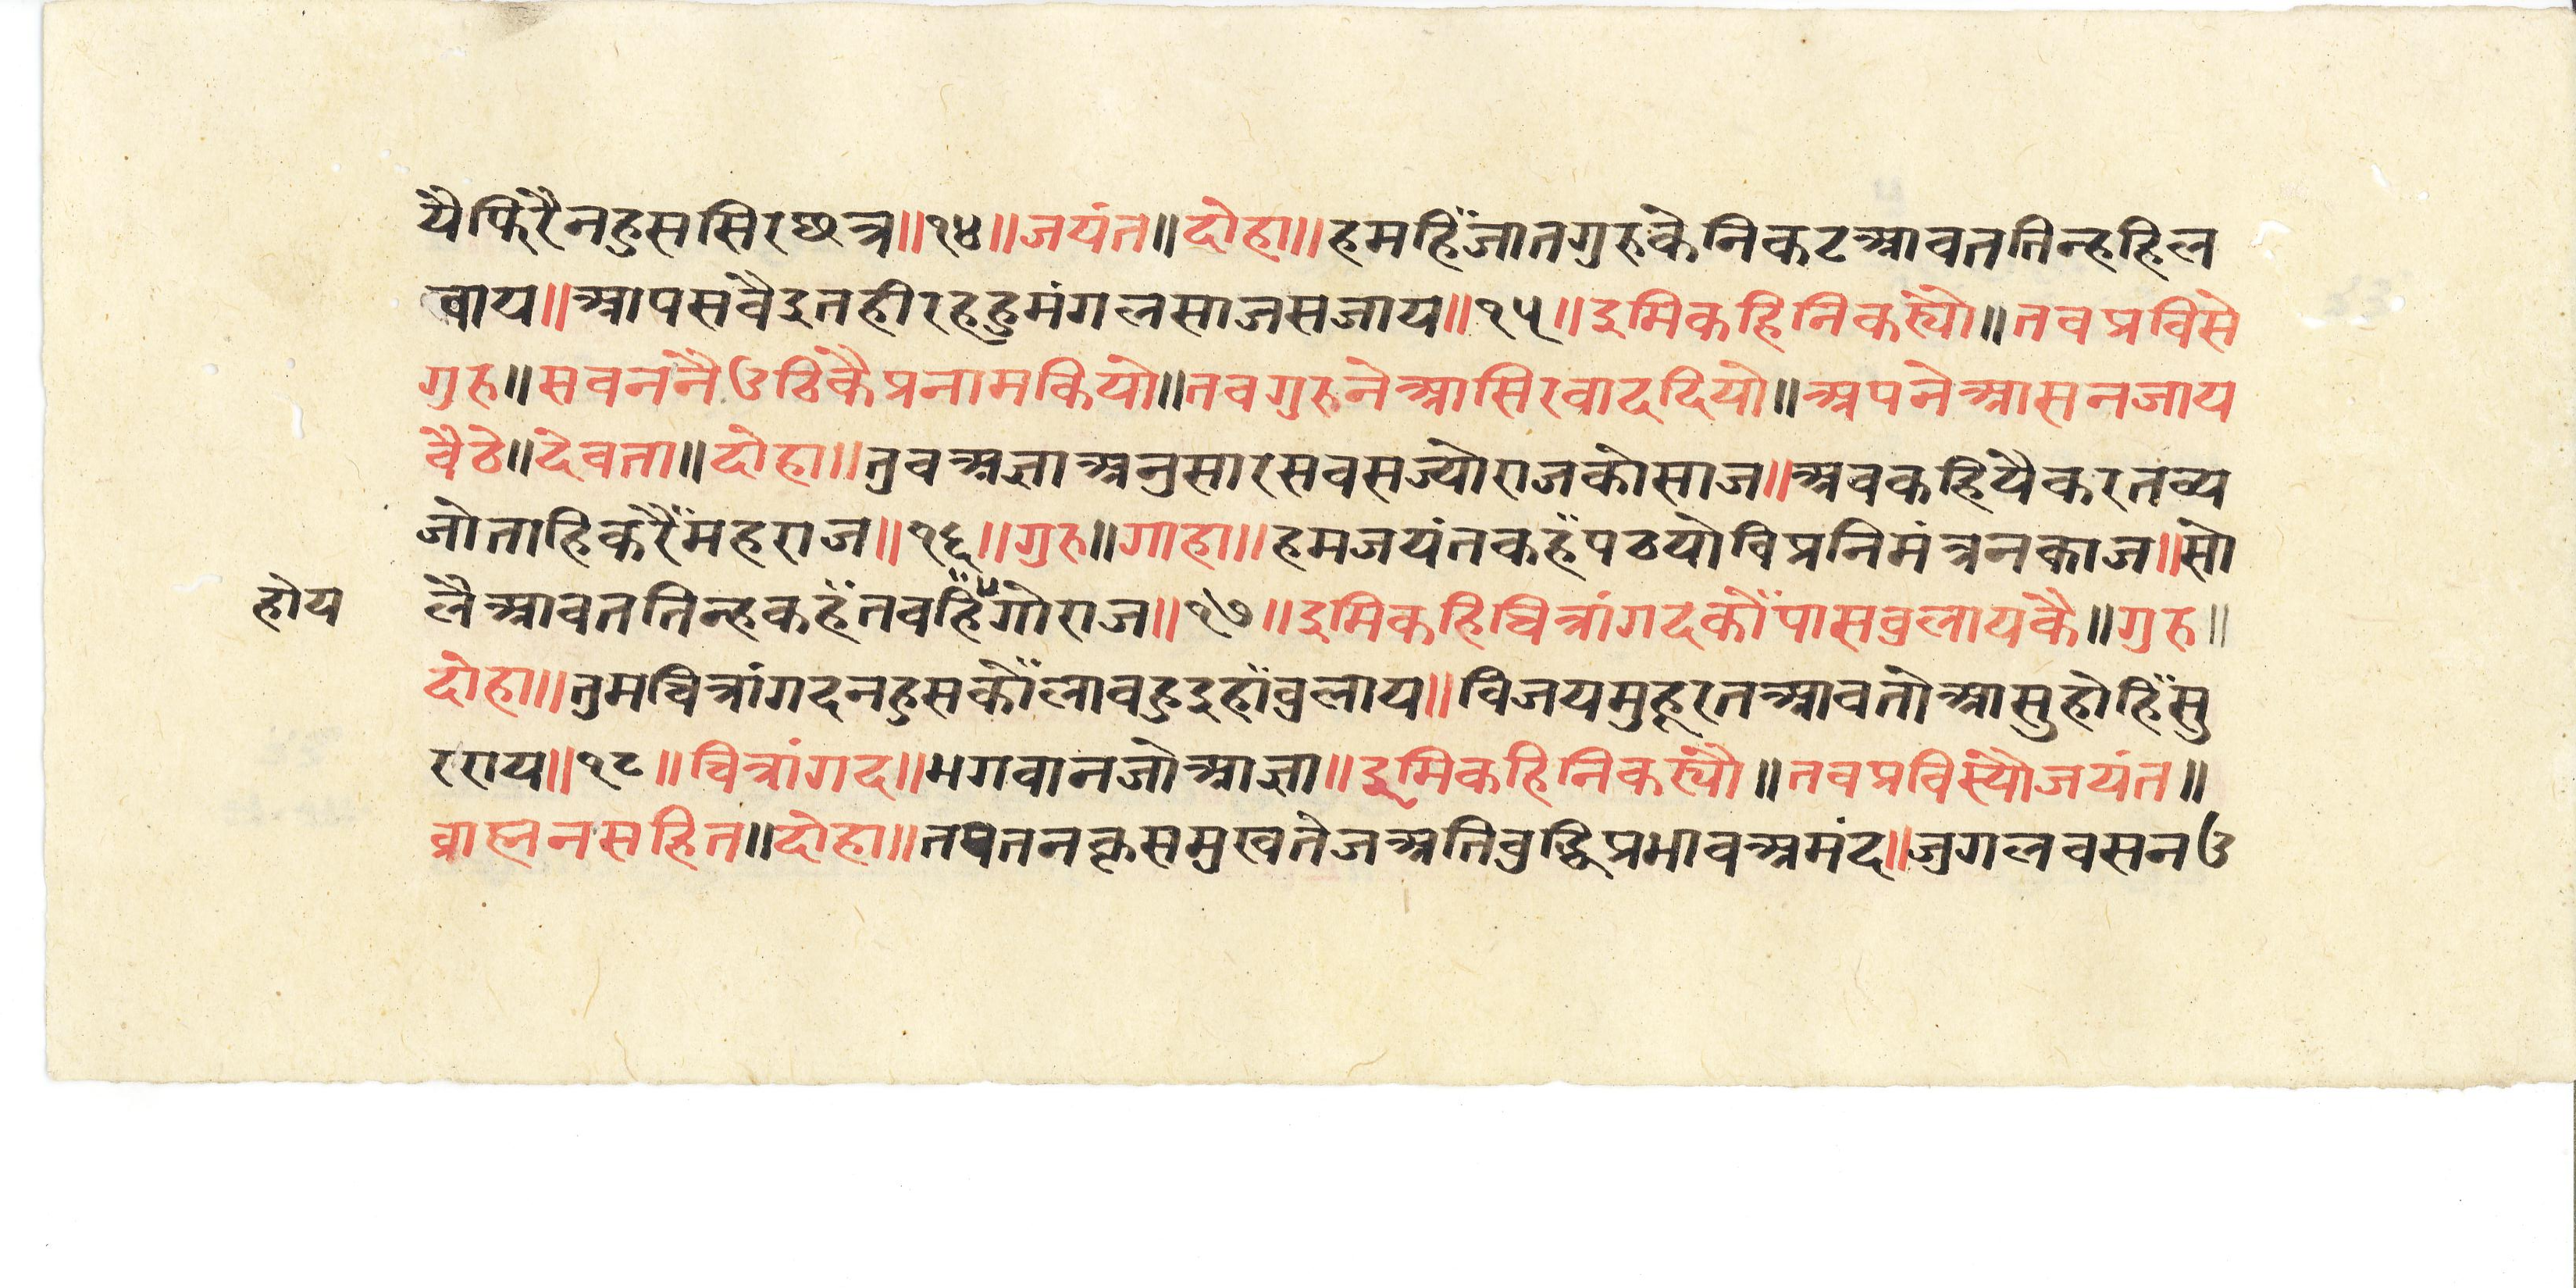 यैफिरैनहुससिरछत्र॥१४॥जयंत॥दोहा॥हमहिँजातगुरुकेनिकटआवततिन्हहिल
वाय॥आपसवैइतहीरहहुमंगलसाजसजाय॥१५॥इमिकहिनिकस्यो॥तवप्रविसे
गुरु॥सवननैउठिकैप्रनामकियो॥तवगुरुनेआसिरवाददियो॥अपनेआसनजाय
वैठे॥देवता॥दोहा॥तुवअज्ञाअनुसारसवसज्योराजकोसाज॥अवकहियैकरतव्य
जोताहिकरैँमहराज॥१६॥गुरु॥गाहा॥हमजयंतकहँपठयोविप्रनिमंत्रनकाज॥सो
लैआवततिन्हकहँतवहिँगोराज॥१७॥इमिकहिचित्रांगदकौँपासवुलायकै॥गुरु॥
होय
दोहा॥तुमचित्रांगदनहुसकौँलावहुइहाँवुलाय॥विजयमुहूरतआवतोआसुहोहिँसु
रराय॥१८॥चित्रांगद॥भगवानजोआज्ञा॥इमिकहिनिकस्यौ॥तवप्रविस्यौजयंत॥
व्राह्मनसहित॥दोहा॥तपतनकृसमुखतेजअतिवुद्धिप्रभावअमंद॥जुगलवसनउ